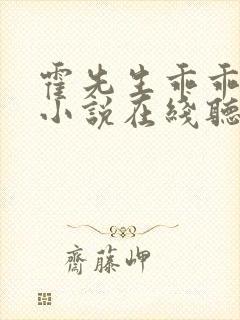 霍先生乖乖
小说在线聽
齋藤岬